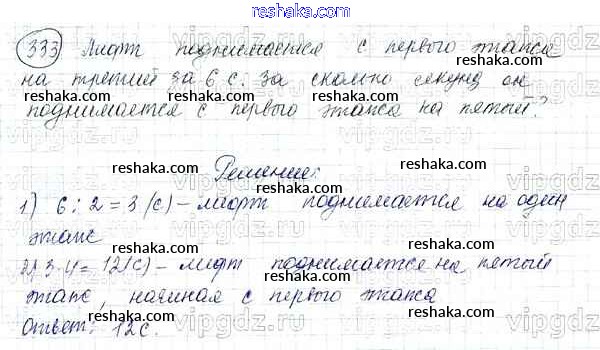 333 Лифт поднимается с первого этажа
на третий за 6 с. За сколько секунд он
поднимается с первого этажа на пятый?
Решение:
1) 6 : 2 = 3 (с) – лифт поднимается на один
этаж
2) 3·4 = 12(с) – лифт поднимается на пятый
этаж, начиная с первого этажа
Ответ: 12с.
reshaka.com
reshaka.com
reshaka.com
reshaka.com
reshaka.com
reshaka.com
reshaka.com
reshaka.com
reshaka.com
reshaka.com
reshaka.com
reshaka.com
reshaka.com
reshaka.com
vipgdz.com